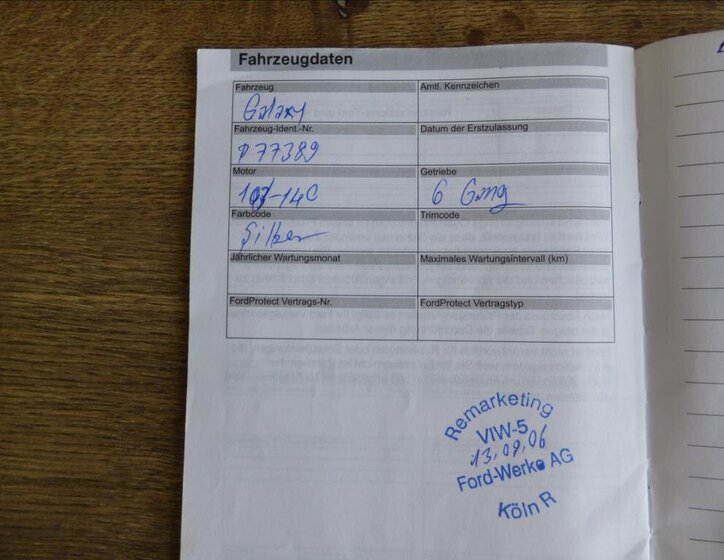 Fahrzeugdaten
Fahrzeug
Amtl. Kennzeichen
Galaxy
Fahrzeug-Ident.-Nr.
Datum der Erstzulassung
P77389
Motor
Getriebe
6 Gang
Farbcode
Trimcode
Silber
Jährlicher Wartungsmonat
Maximales Wartungsintervall (km)
FordProtect Vertrags-Nr.
FordProtect Vertragstyp
Remarketing
VIW-5
13.09.06
Ford-Werke AG
Köln R